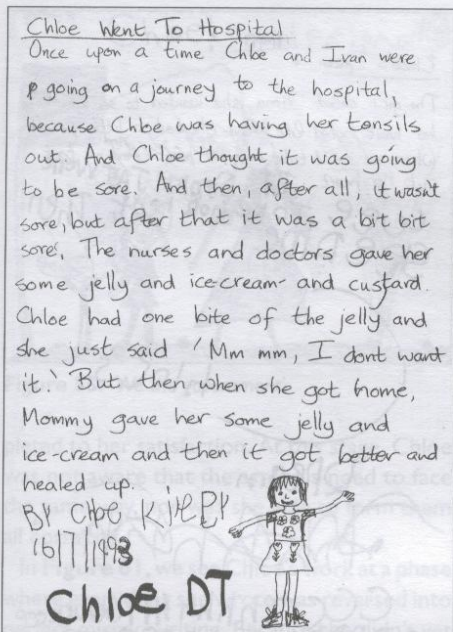 Chloe Went To Hospital
Once upon a time Chloe and Ivan were
going on a journey to the hospital,
because Chloe was having her tonsils
out. And Chloe thought it was going
to be sore. And then, after all, it wasn't
sore, but after that it was a bit bit
sore. The nurses and doctors gave her
some jelly and ice-cream and custard.
Chloe had one bite of the jelly and
she just said 'Mm mm, I dont want
it.' But then when she got home,
Mommy gave her some jelly and
ice-cream and then it got better and
healed up.
BY Chloe
16/7/1993
Chloe DT